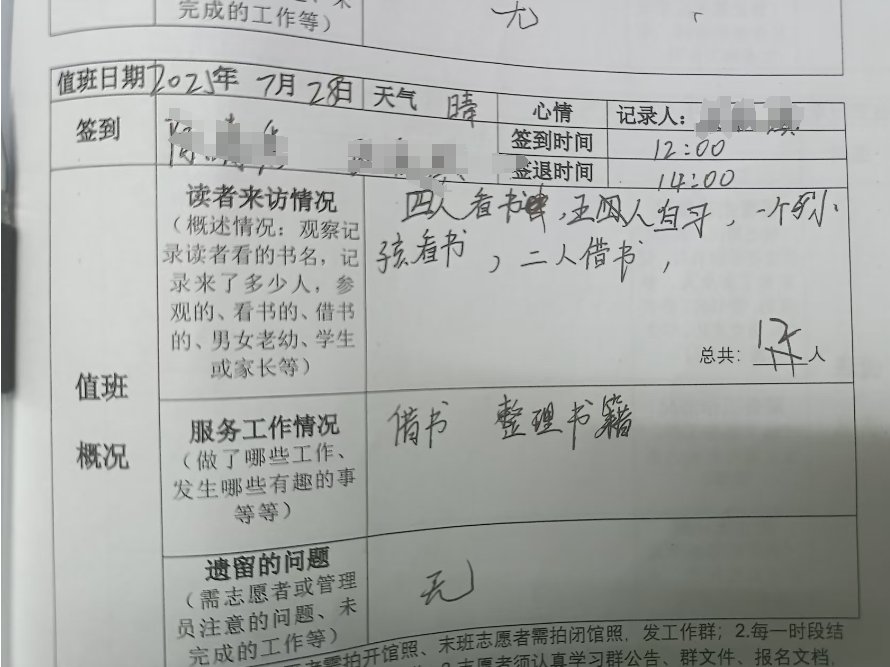 完成的工作等）
无
值班日期 2025年 7月 28日 天气 晴 心情 记录人：
签到
签到时间 12:00
签退时间 14:00
值班
概况
读者来访情况
（概述情况：观察记
录读者看的书名，记
录来了多少人，参
观的、看书的、借书
的、男女老幼、学生
或家长等）
四人看书，五四人自习，一个小
孩看书，二人借书，
总共： 12 人
服务工作情况
（做了哪些工作、
发生哪些有趣的事
等等）
借书 整理书籍
遗留的问题
（需志愿者或管理
员注意的问题、未
完成的工作等）
无
需拍开馆照、末班志愿者需拍闭馆照，发工作群；2.每一时段结
志愿者须认真学习群公告、群文件、报名文档，